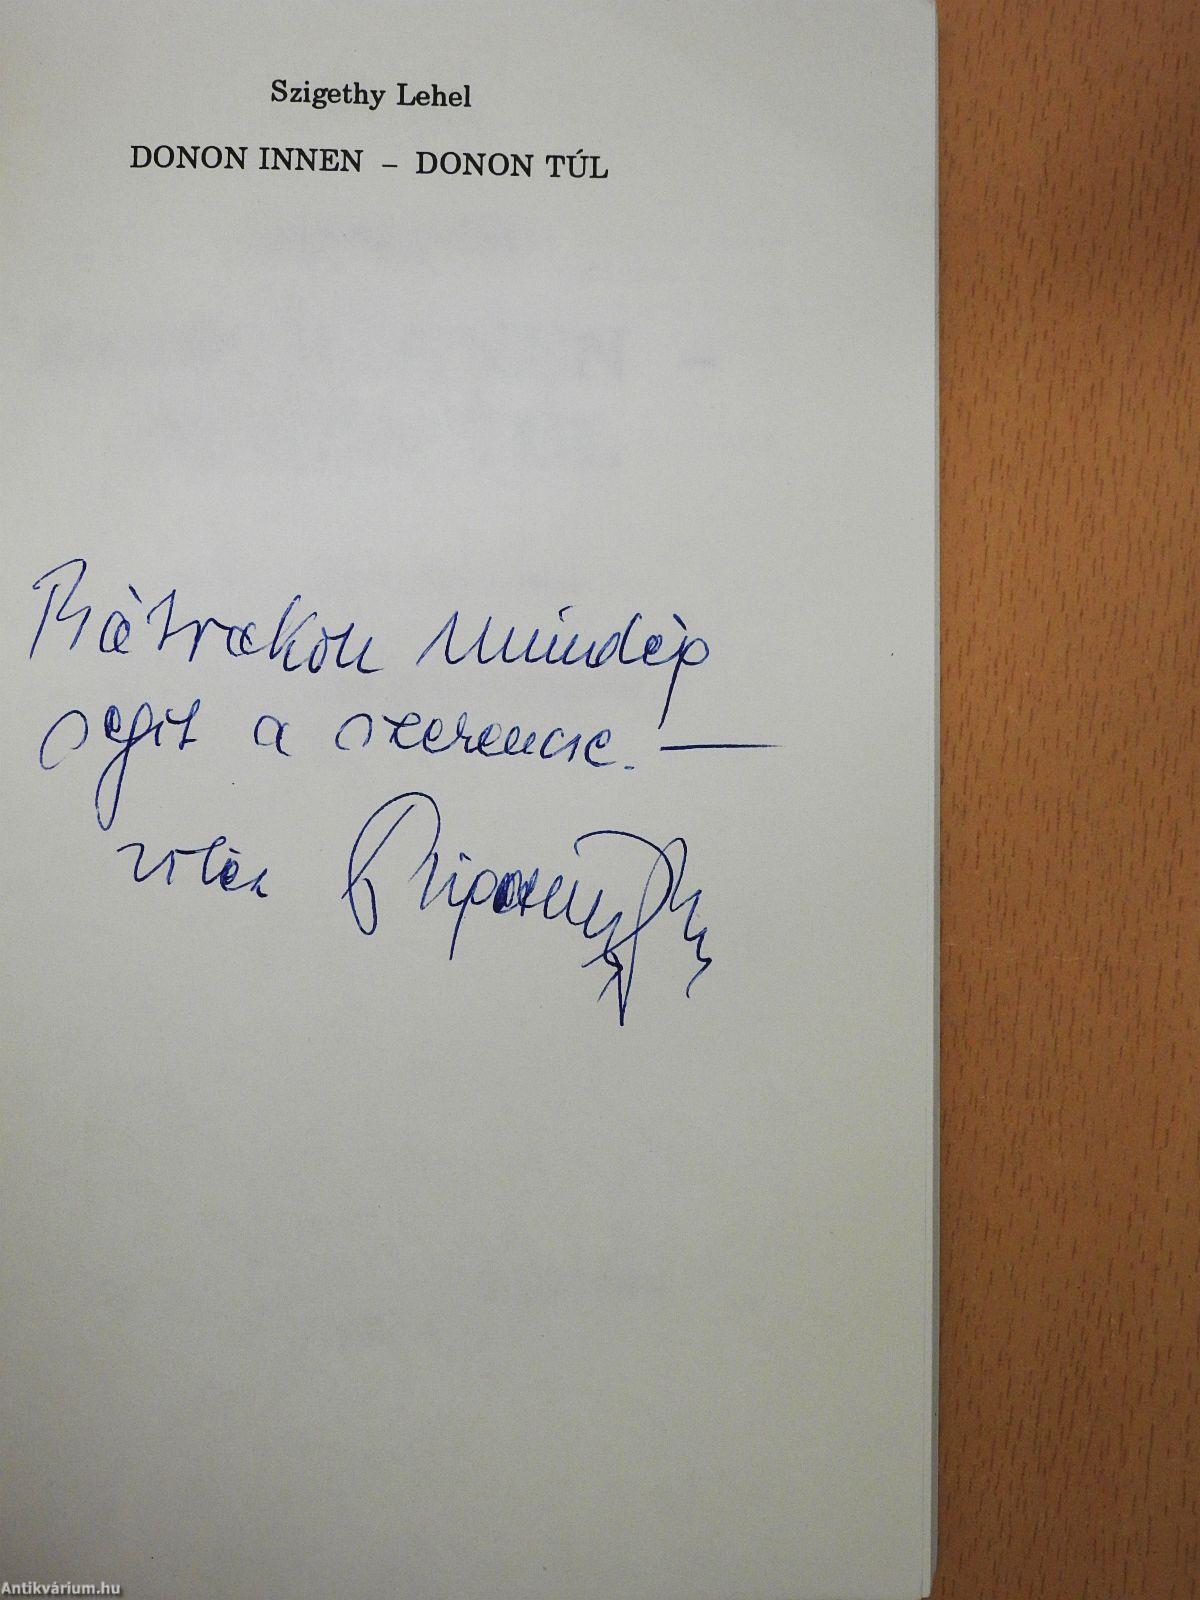 Szigethy Lehel
DONON INNEN – DONON TÚL
Bátrakon mindég
segit a szerencse. —
vitéz
Antikvárium.hu